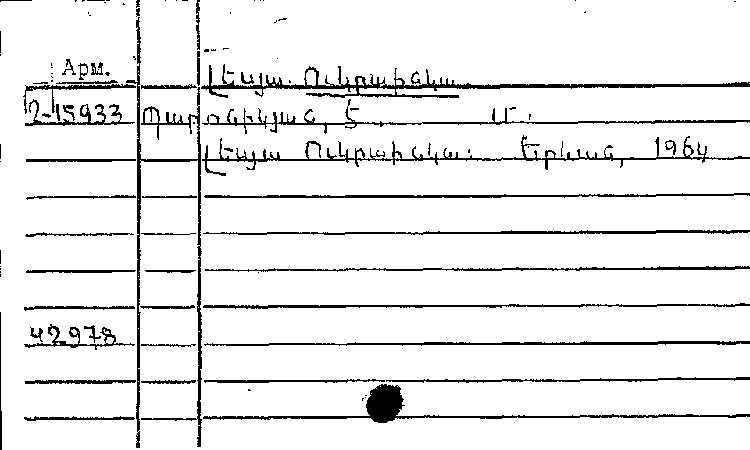 Арм. Լեսյա Ուկրաինկա
2-15933 Պարոնիկյան, Ե. Մ.
Լեսյա Ուկրաինկա. Երևան, 1964
42978